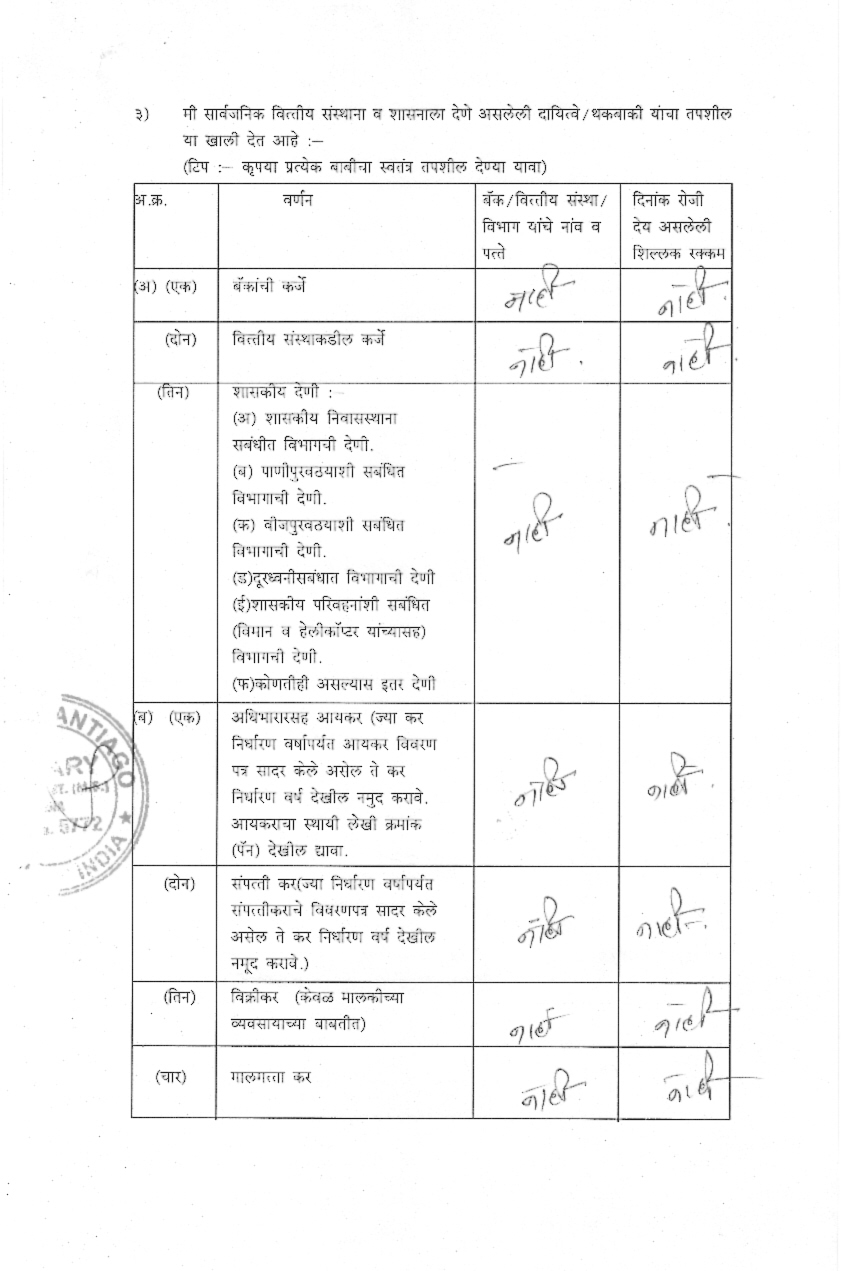 ३) मी सार्वजनिक वित्तीय संस्थाना व शासनाला देणे असलेली दायित्वे/थकबाकी यांचा तपशील
या खाली देत आहे :–
(टिप :– कृपया प्रत्येक बाबीचा स्वतंत्र तपशील देण्या यावा)
अ.क्र. वर्णन बॅक/वित्तीय संस्था/ दिनांक रोजी
विभाग यांचे नांव व देय असलेली
पत्ते शिल्लक रक्कम
(अ) (एक) बॅकांची कर्जे नाही नाही.
(दोन) वित्तीय संस्थाकडील कर्जे नाही. नाही.
(तिन) शासकीय देणी :–
(अ) शासकीय निवासस्थाना
सबंधीत विभागची देणी.
(ब) पाणीपुरवठयाशी सबंधित
विभागाची देणी.
(क) वीजपुरवठयाशी सबंधित नाही नाही.
विभागाची देणी.
(ड)दूरध्वनीसबंधात विभागाची देणी
(ई)शासकीय परिवहनांशी सबंधित
(विमान व हेलीकॉप्टर यांच्यासह)
विभागची देणी.
(फ)कोणतीही असल्यास इतर देणी
(ब) (एक) अधिभारासह आयकर (ज्या कर
निर्धारण वर्षापर्यंत आयकर विवरण
पत्र सादर केले असेल ते कर
निर्धारण वर्ष देखील नमुद करावे. नाही नाही.
आयकराचा स्थायी लेखी क्रमांक
(पॅन) देखील द्यावा.
(दोन) संपत्ती कर(ज्या निर्धारण वर्षापर्यत
संपत्तीकराचे विवरणपत्र सादर केले
असेल ते कर निर्धारण वर्ष देखील नाही नाही.
नमूद करावे.)
(तिन) विक्रीकर (केवळ मालकीच्या
व्यवसायाच्या बाबतीत) नाही नाही
(चार) मालमत्ता कर नाही नाही
ANTIAGO
ARY
5772
INDIA